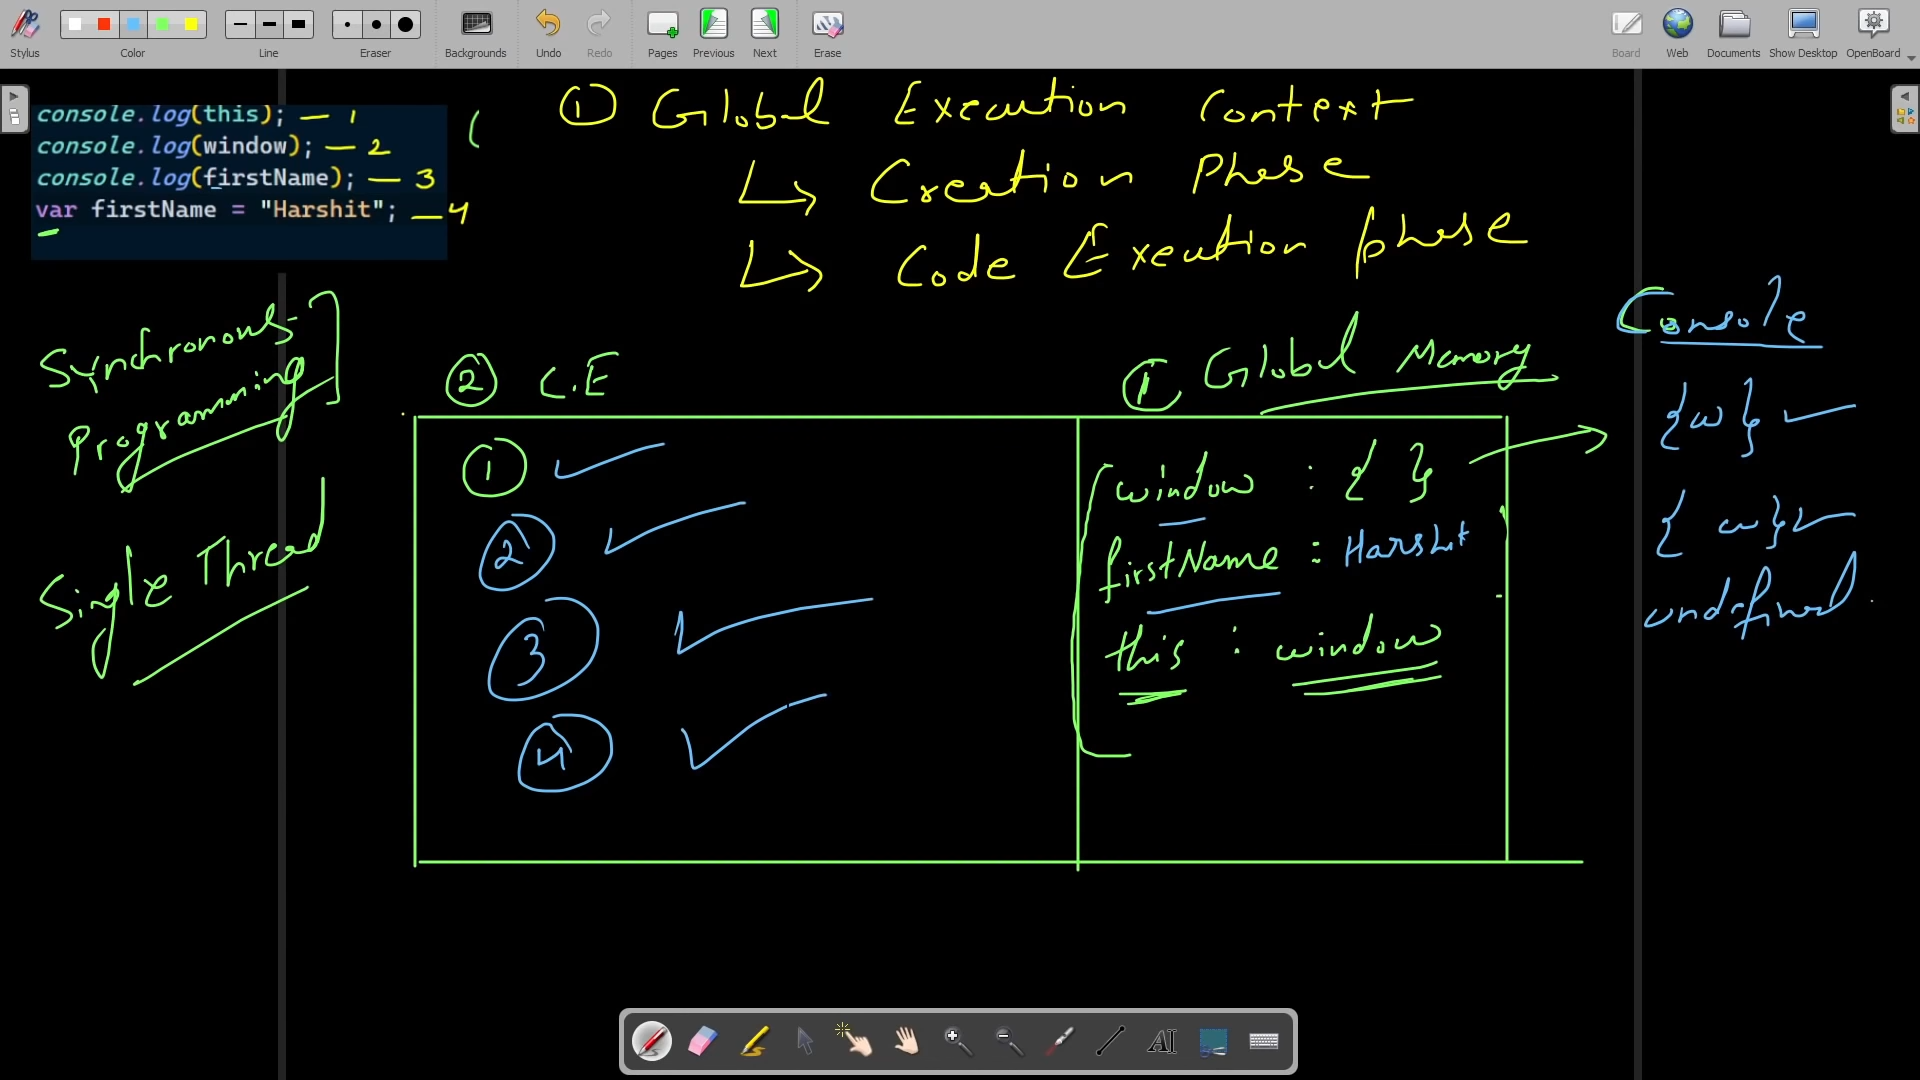 Stylus
Color
Line
Eraser
Backgrounds
Undo
Redo
Pages
Previous
Next
Erase
Board
Web
Documents
Show Desktop
OpenBoard
console.log(this); — 1
console.log(window); — 2
console.log(firstName); — 3
var firstName = "Harshit"; — 4
(
① Global Execution Context
↳ Creation Phase
↳ Code Execution phase
Synchronous
Programming
Single Thread
② C.E
① Global Memory
① ✓
② ✓
③ ✓
④ ✓
window : { }
firstName : Harshit
this : window
Console
{w} ✓
{ w} ✓
undefined
AI